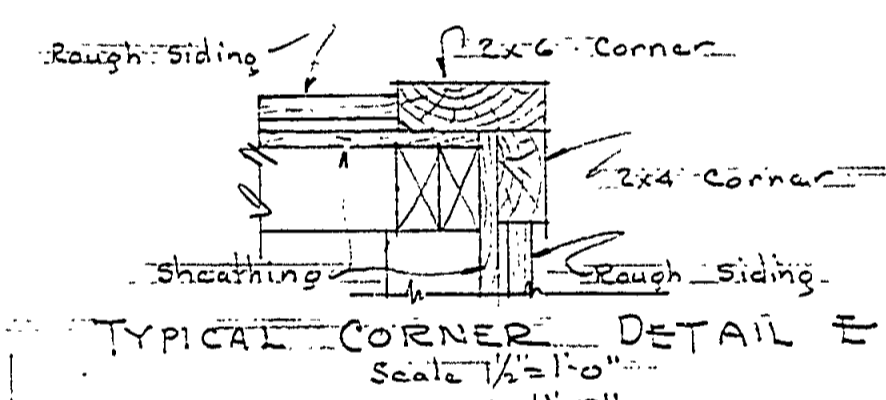 Rough Siding
2x6 Corner
2x4 Corner
Sheathing
Rough Siding
TYPICAL CORNER DETAIL E
Scale 1½"=1'-0"